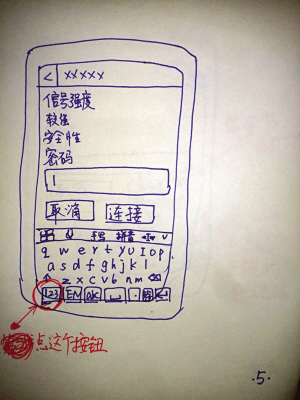 < xxxxx
信号强度
较强
安全性
密码
取消 连接
手写 拼音
q w e r t y u I o p
a s d f g h j k l
z x c v b n m
123 EN OK
点这个按钮
·5·